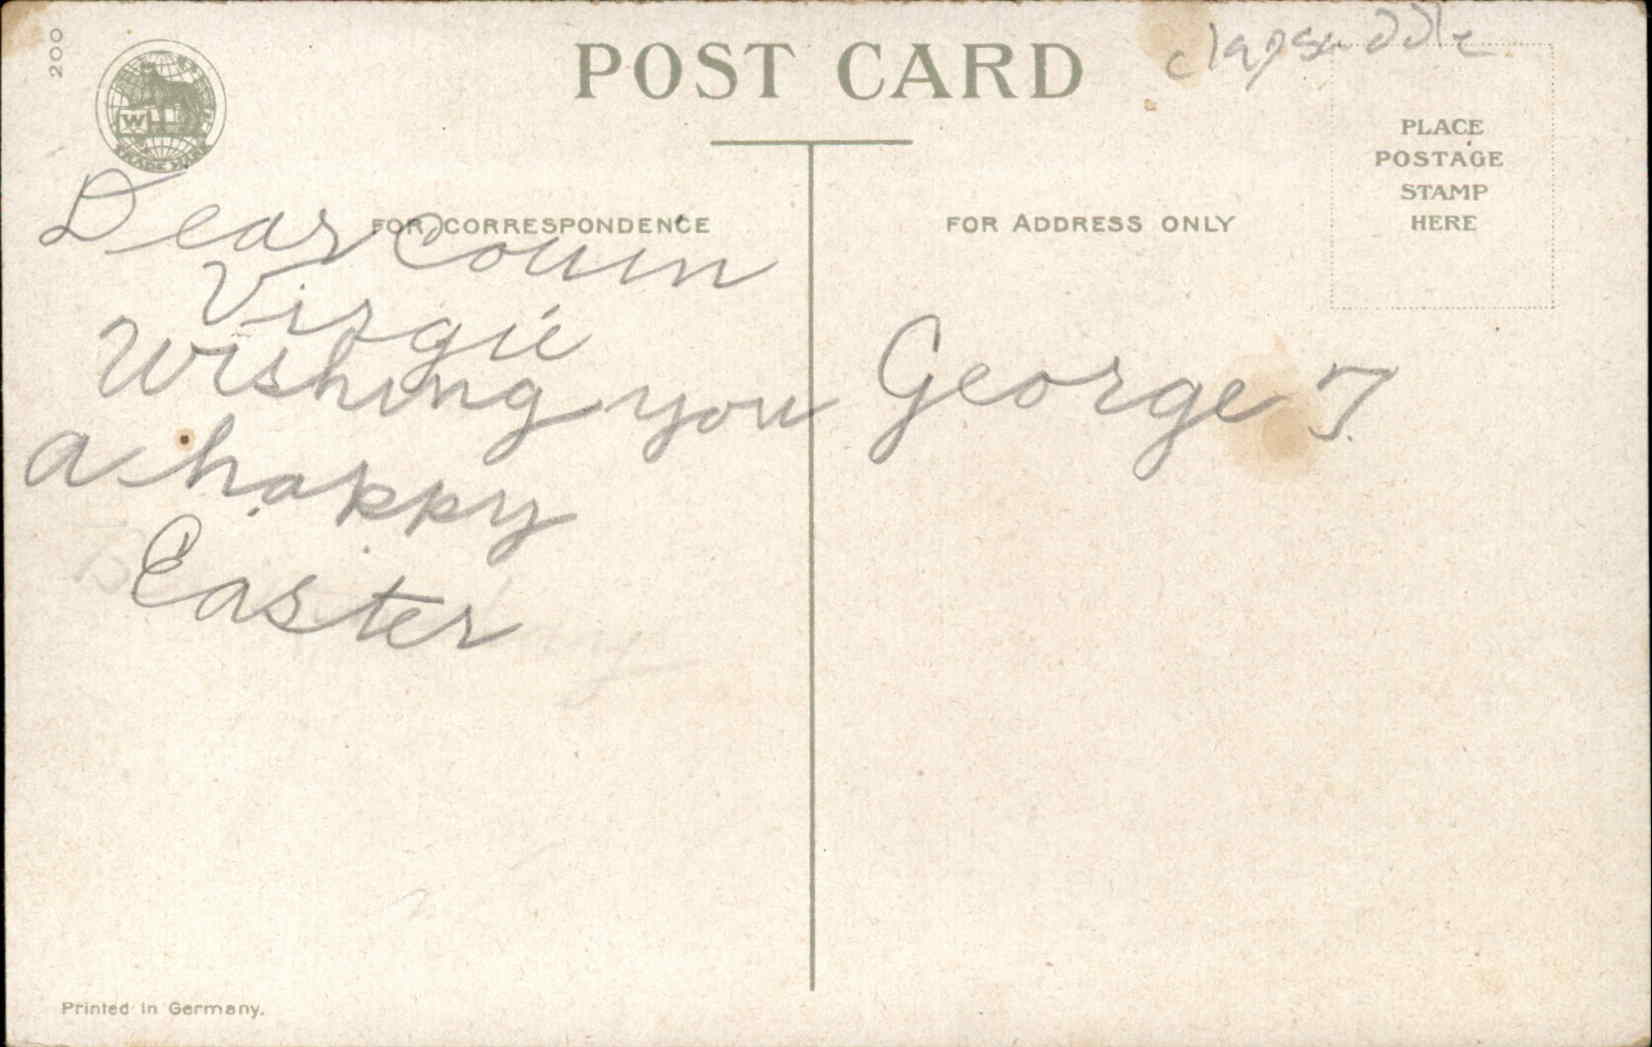 200
POST CARD
clapsaddle
PLACE
POSTAGE
STAMP
HERE
W
TRADE MARK
FOR CORRESPONDENCE
FOR ADDRESS ONLY
Dear Cousin
Virgie
Wishing you
a happy
Easter
George T.
Printed in Germany.